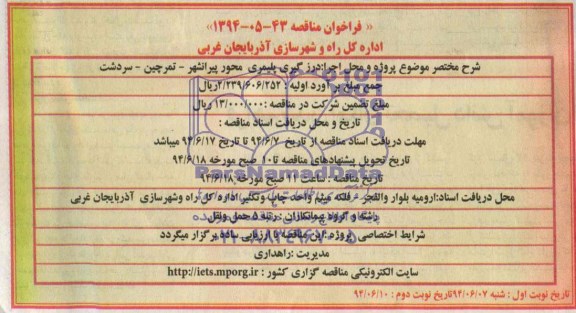 « فراخوان مناقصه ۴۳-۰۵-۱۳۹۴»
اداره کل راه و شهرسازی آذربایجان غربی
شرح مختصر موضوع پروژه و محل اجرا:درز گیری پلیمری محور پیرانشهر - تمرچین - سردشت
جمع مبلغ برآورد اولیه : ۲/۲۳۹/۶۰۶/۲۵۲ ریال
مبلغ تضمین شرکت در مناقصه : ۱۳/۰۰۰/۰۰۰ ریال
تاریخ و محل دریافت اسناد مناقصه :
مهلت دریافت اسناد مناقصه از تاریخ ۹۴/۶/۷ تا تاریخ ۹۴/۶/۱۷ میباشد
تاریخ تحویل پیشنهادهای مناقصه تا۱۰ صبح مورخه ۹۴/۶/۱۸
تاریخ مناقصه : ساعت ۱۱ صبح مورخه ۹۴/۶/۱۸
ParsNamadData
محل دریافت اسناد:ارومیه بلوار والفجر - فلکه میثم واحد چاپ وتکثیر اداره کل راه وشهرسازی آذربایجان غربی
رشته و گروه پیمانکاران : رتبه ۵ حمل ونقل
شرایط اختصاصی پروژه :این مناقصه با ارزیابی ساده برگزار میگردد
مدیریت :راهداری
سایت الکترونیکی مناقصه گزاری کشور : http://iets.mporg.ir
تاریخ نوبت اول : شنبه ۹۴/۰۶/۰۷تاریخ نوبت دوم : ۹۴/۰۶/۱۰